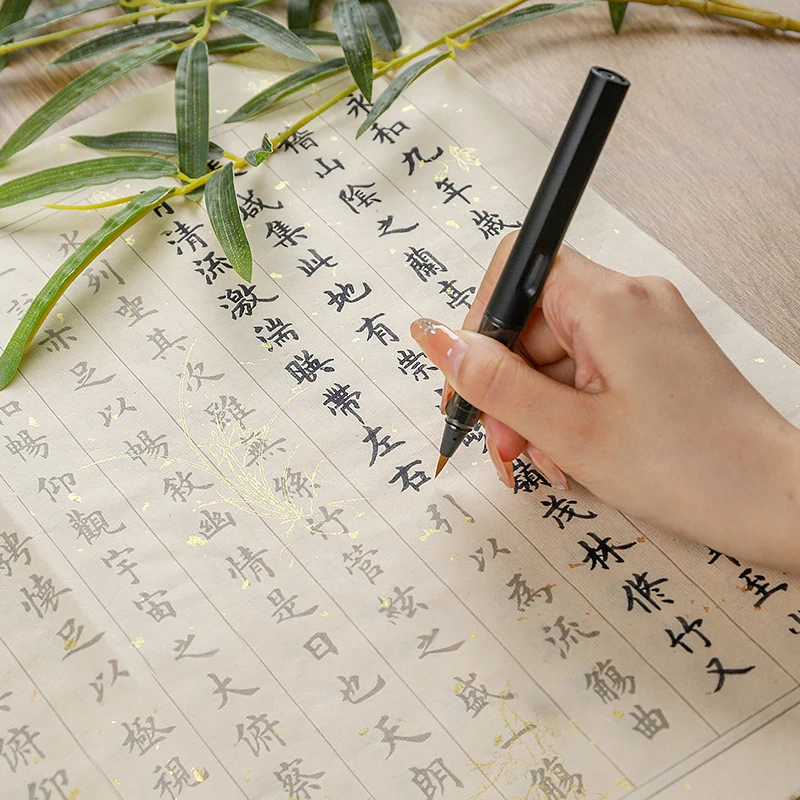 永和九年歲
稽山陰之蘭亭至少
咸集此地有崇嶺茂林修竹又
清流激湍暎帶左右引以為流觴曲
水列坐其次雖無絲竹管絃之盛一觴
一詠亦足以暢敘幽情是日也天朗
和暢仰觀宇宙之大俯察
騁懷足以極視
俯仰